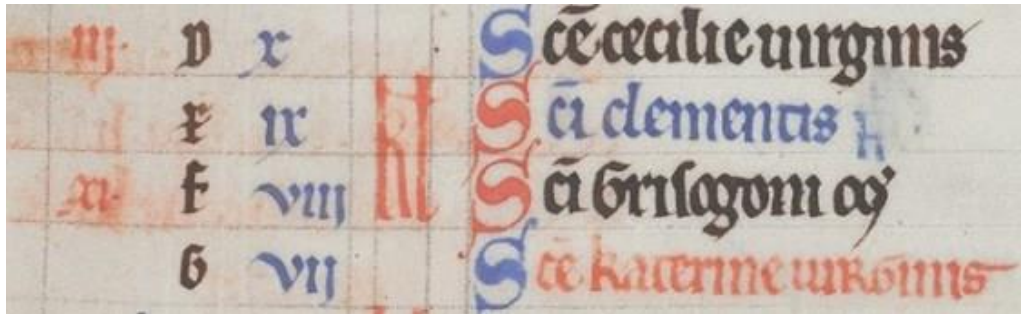 iij. D x Sc̄e cecilie uirginis
e ix Sc̄i clementis
xi. f viij kl Sc̄i Grisogoni
G vij Sc̄e katerine uirginis